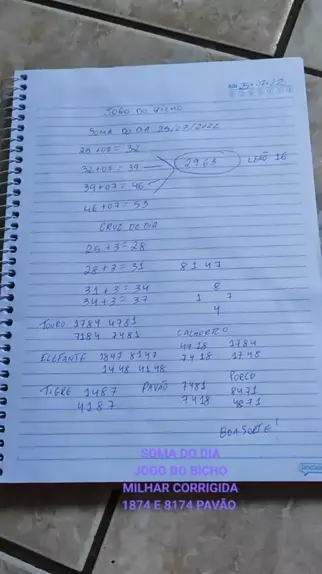 25.07.22
JOGO DO BICHO
SOMA DO DIA 25/07/2022
25+07=32
32+07=39
2963
LEÃO 16
39+07=46
46+07=53
CRUZ DO DIA
25+3=28
28+3=31
8147
31+3=34
8
34+3=37
1 7
4
TOURO 1784 4781
7184 7481
CACHORRO
4718 1784
7418 1748
ELEFANTE 1847 8147
1448 4148
PORCO
TIGRE 1487
4187
PAVÃO 7481
7418
8471
4871
BOA SORTE!
SOMA DO DIA
JOGO DO BICHO
MILHAR CORRIGIDA
1874 E 8174 PAVÃO